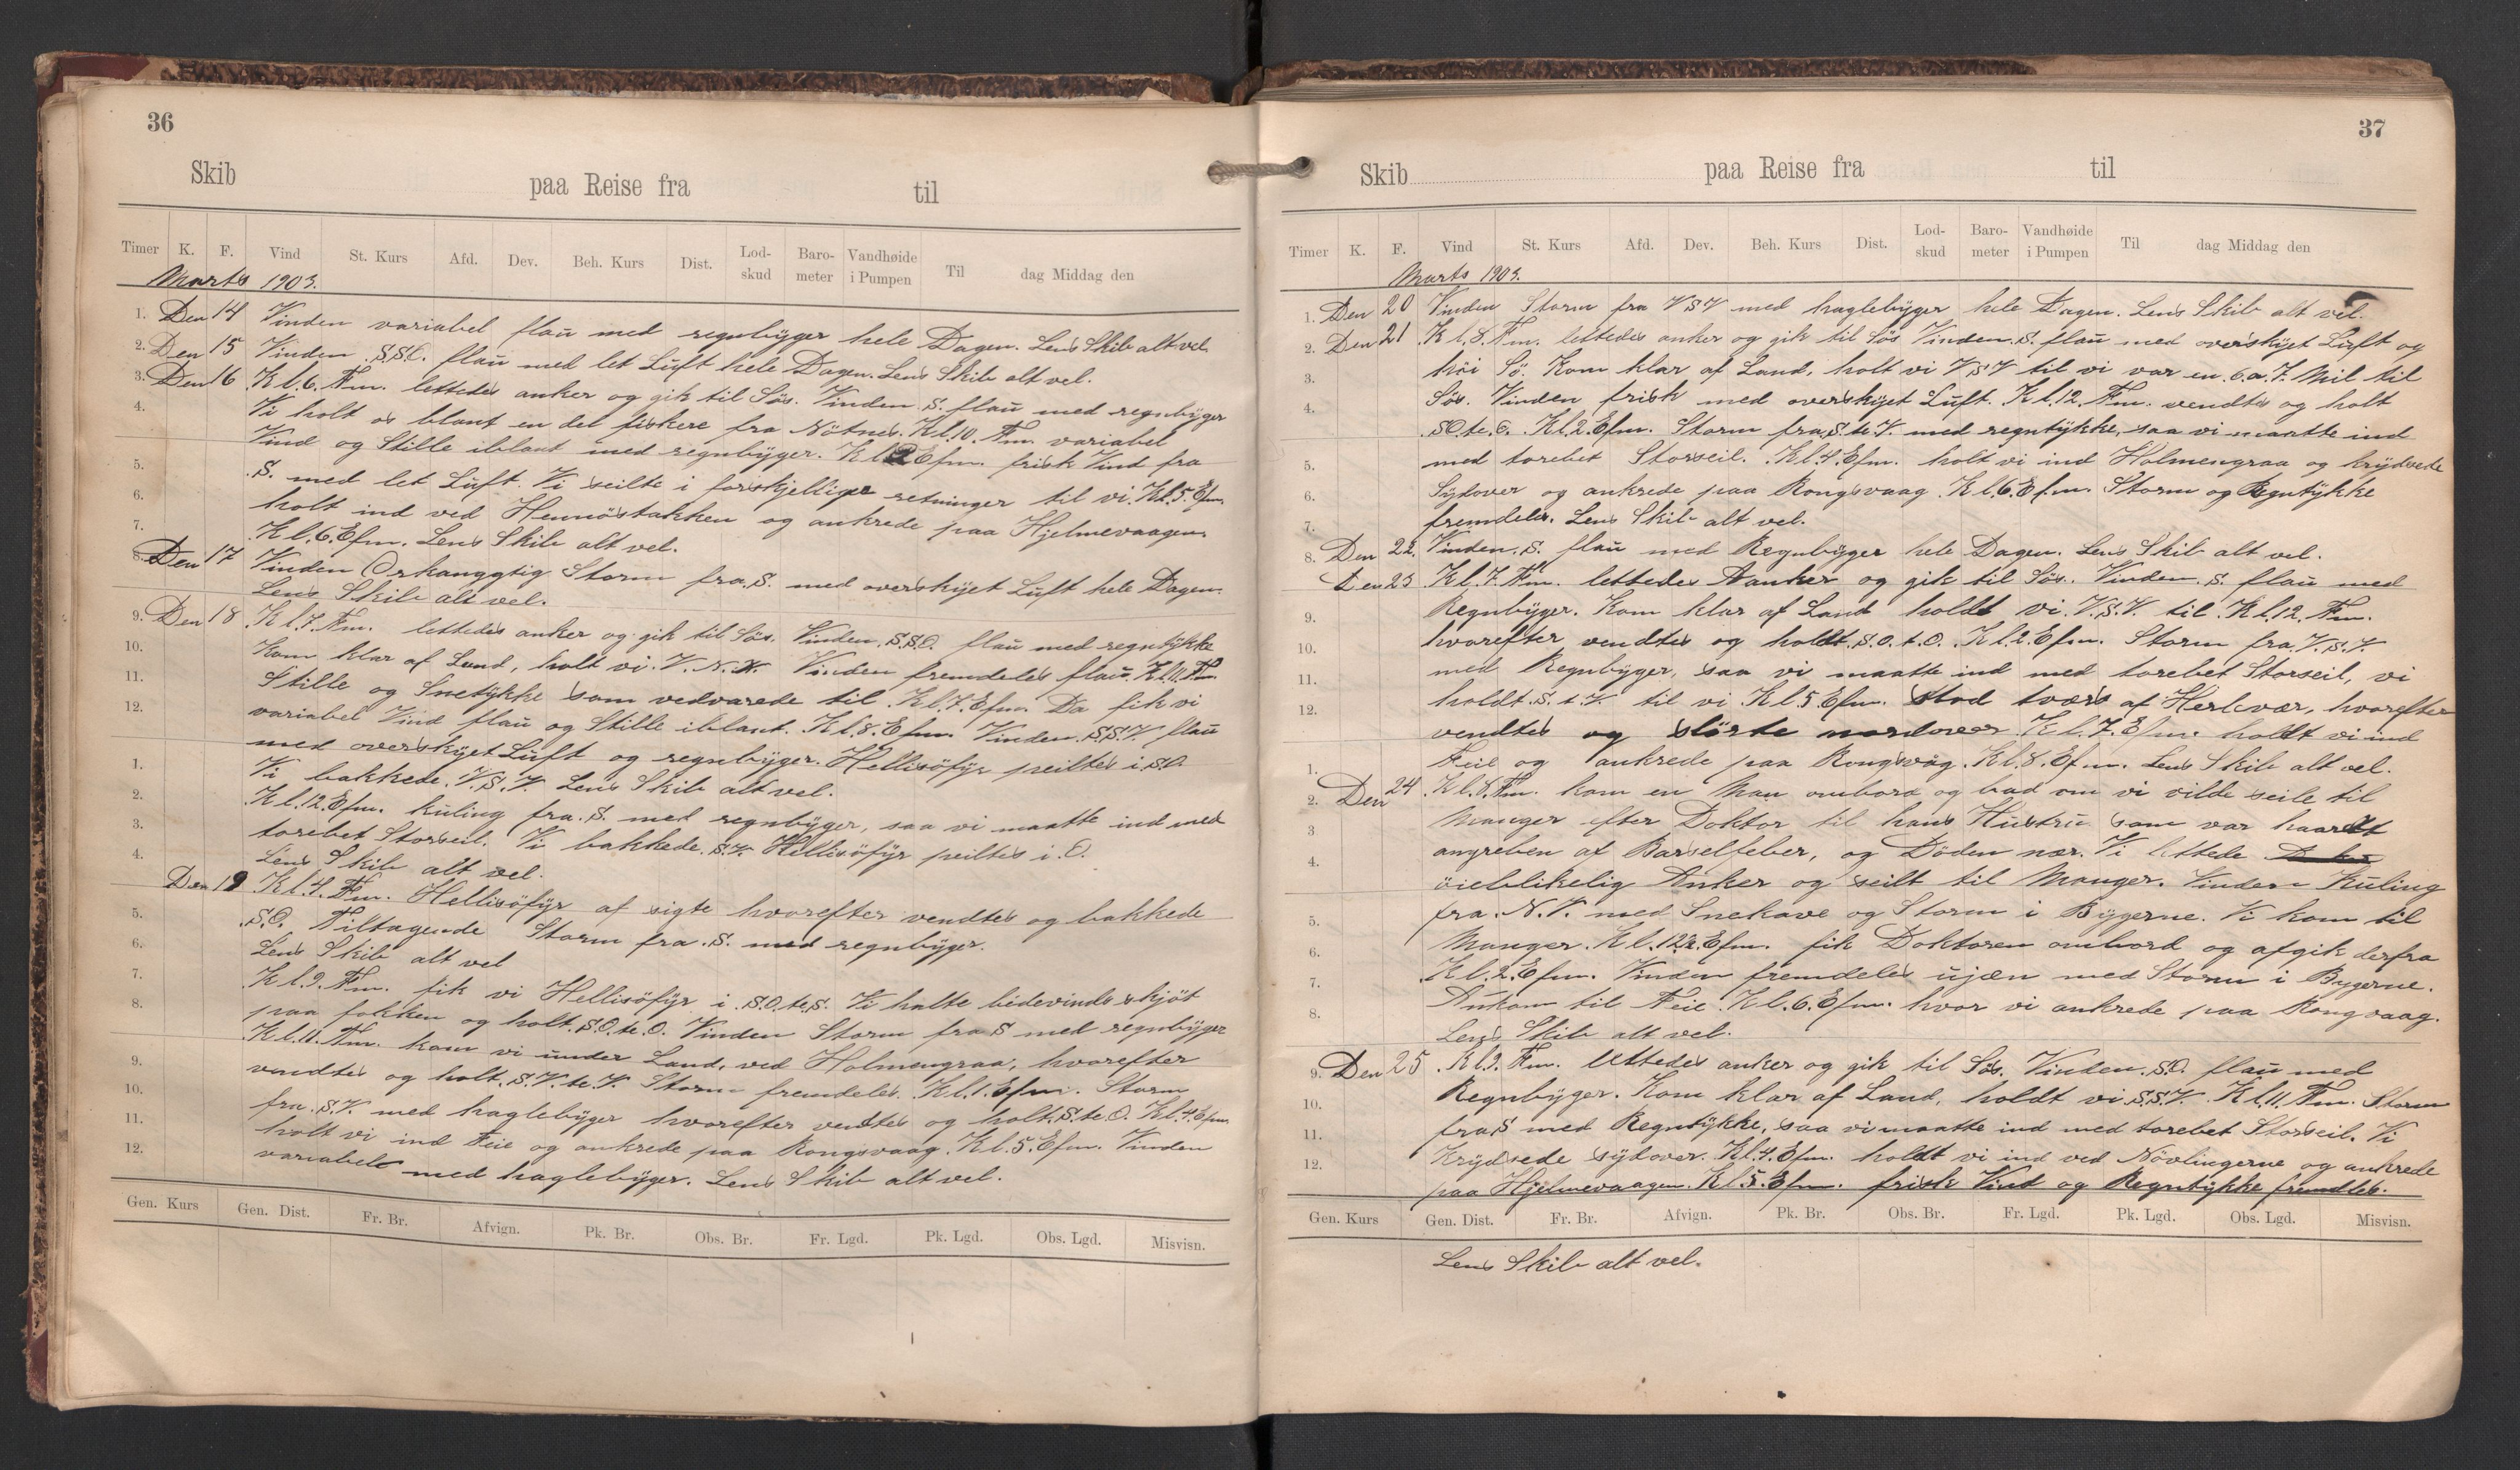 36
Skib paa Reise fra til
Timer K. F. Vind St. Kurs Afd. Dev. Beh. Kurs Dist. Lod-skud Baro-meter Vandhøide i Pumpen Til dag Middag den
Marts 1903.
1. Den 14 Vinden variabel flaü med regnbÿger hele Dagen. Lens Skib alt vel.
2. Den 15 Vinden S.S.O. flaü med let Lüft hele Dagen. Lens Skib alt vel.
3. Den 16 Kl. 6. Fm. lettedes anker og gik til Søs. Vinden S. flaü med regnbÿger
4. Vi holt os blant en del fiskere fra Nötnes. Kl. 10. Fm. variabel
Vind og Stille iblant med regnbÿger. Kl. 2 Efm. frisk Vind fra
5. S. med let Lüft. Vi seilte i forskjellige retninger til vi Kl. 5. Efm.
6. holt ind ved Hennöstakken og ankrede paa Hjelmevaagen.
7. Kl. 6. Efm. Lens Skib alt vel.
8. Den 17 Vinden Orkanggtig Storm fra S. med overskÿet Lüft hele Dagen.
Lens Skib alt vel.
9. Den 18 Kl. 7. Fm. lettedes anker og gik til Søs. Vinden S.S.O. flaü med regntÿkke
10. Kom klar af Land, holt vi V.N.V. Vinden fremdeles flaü. Kl. 11. Fm.
11. Stille og Snetÿkke som vedvarede til Kl. 7. Efm. Da fik vi
12. variabel Vind flaü og Stille iblant. Kl. 8. Efm. Vinden S.S.V. flaü
med overskÿet Lüft og regnbÿger. Hellisöfÿr peiltes i S.O.
1. Vi bakkede V.S.V. Lens Skib alt vel.
2. Kl. 12. Efm. küling fra S. med regnbÿger, saa vi maatte ind med
3. torebet Storseil. Vi bakkede S.V. Hellisöfÿr peiltes i O.
4. Lens Skib alt vel.
Den 19 Kl. 4. Fm. Hellisöfÿr af sigte hvorefter vendtes og bakkede
5. S.O. Tiltagende Storm fra S. med regnbÿger.
6. Lens Skib alt vel
7. Kl. 9. Fm. fik vi Hellisöfÿr i S.O.te.S. Vi halte bidevinds skjöt
8. paa fokken og holt S.O.te.O. Vinden Storm fra S med regnbÿger
Kl. 11. Fm. kom vi ünder Land, ved Holmengraa, hvorefter
9. vendtes og holt S.V.te.V. Storm fremdeles. Kl. 1. Efm. Storm
10. fra S.V. med haglebÿger hvorefter vendtes og holt S.te.O. Kl. 4. Efm.
11. holt vi ind Feie og ankrede paa Rongsvaag. Kl. 5. Efm. Vinden
12. variabel med haglebÿger. Lens Skib alt vel.
Gen. Kurs Gen. Dist. Fr. Br. Afvign. Pk. Br. Obs. Br. Fr. Lgd. Pk. Lgd. Obs. Lgd. Misvisn.
37
Skib paa Reise fra til
Timer K. F. Vind St. Kurs Afd. Dev. Beh. Kurs Dist. Lod-skud Baro-meter Vandhøide i Pumpen Til dag Middag den
Marts 1903.
1. Den 20 Vinden Storm fra VSV med haglebÿger hele Dagen. Lens Skib alt vel.
2. Den 21 Kl. 8. Fm. lettedes anker og gik til Søs Vinden S. flaü med overskÿet Lüft og
3. höi Sö. Kom klar af Land, holt vi VSV til vi var en 6.a.7. Mil til
4. Søs. Vinden frisk med overskÿet Lüft. Kl. 12. Fm. vendtes og holt
SO.te.O. Kl. 2. Efm. Storm fra S.te.V. med regntÿkke, saa vi maatte ind
5. med torebet Storseil. Kl. 4. Efm. holt vi ind Holmengraa og krÿdsede
6. Sÿdover og ankrede paa Rongsvaag Kl. 6. Efm. Storm og Regntÿkke
7. fremdeles. Lens Skib alt vel.
8. Den 22. Vinden S. flaü med Regnbÿger hele Dagen. Lens Skib alt vel.
Den 23 Kl. 7. Fm. lettedes Aanker og gik til Søs. Vinden S. flaü med
9. Regnbÿger. Kom klar af Land holdt vi V.S.V. til Kl. 12. Fm.
10. hvorefter vendtes og holdt S.O.t.O. Kl. 2. Efm. Storm fra V.S.V.
11. med Regnbÿger, saa vi maatte ind med torebet Storseil, vi
12. holdt S.t.V. til vi Kl. 5 Efm. stod tværs af Herlevær, hvorefter
vendtes og slörte nordover Kl. 7. Efm. holdt vi ind
1. Feie og ankrede paa Rongsvåg Kl. 8. Efm. Lens Skib alt vel.
2. Den 24 Kl. 8. Fm. kom en Man ombord og bad om vi vilde seile til
3 Manger efter Doktor til hans Hüstrü som var haardt
4. angreben af Barselfeber, og Döden nær. Vi lettede
öieblikelig Anker og seilt til Manger. Vinden Küling
5. fra N.V. med Snekave og Storm i Bÿgerne. Vi kom til
6. Manger Kl. 12½ Efm. fik Doktoren ombord og afgik derfra
7. Kl. 2. Efm. Vinden fremdeles üjæn med Storm i Bygerne.
8. Ankom til Feie Kl. 6. Efm. hvor vi ankrede paa Rongvaag.
Lens Skib alt vel.
9. Den 25 Kl. 9. Fm. lettedes anker og gik til Søs. Vinden S.O. flaü med
10. Regnbÿger. Kom klar af Land, holdt vi S.S.V. Kl. 11. Fm. Storm
11. fra S med Regntÿkke, saa vi maatte ind med torebet Storseil. Vi
12. Krÿdsede sÿdover. Kl. 4. Efm. holdt vi ind ved Növlingerne og ankrede
paa Hjelmevaagen Kl. 5. Efm. frisk Vind og Regntÿkke fremdles.
Gen. Kurs Gen. Dist. Fr. Br. Afvign. Pk. Br. Obs. Br. Fr. Lgd. Pk. Lgd. Obs. Lgd. Misvisn.
Lens Skib alt vel.